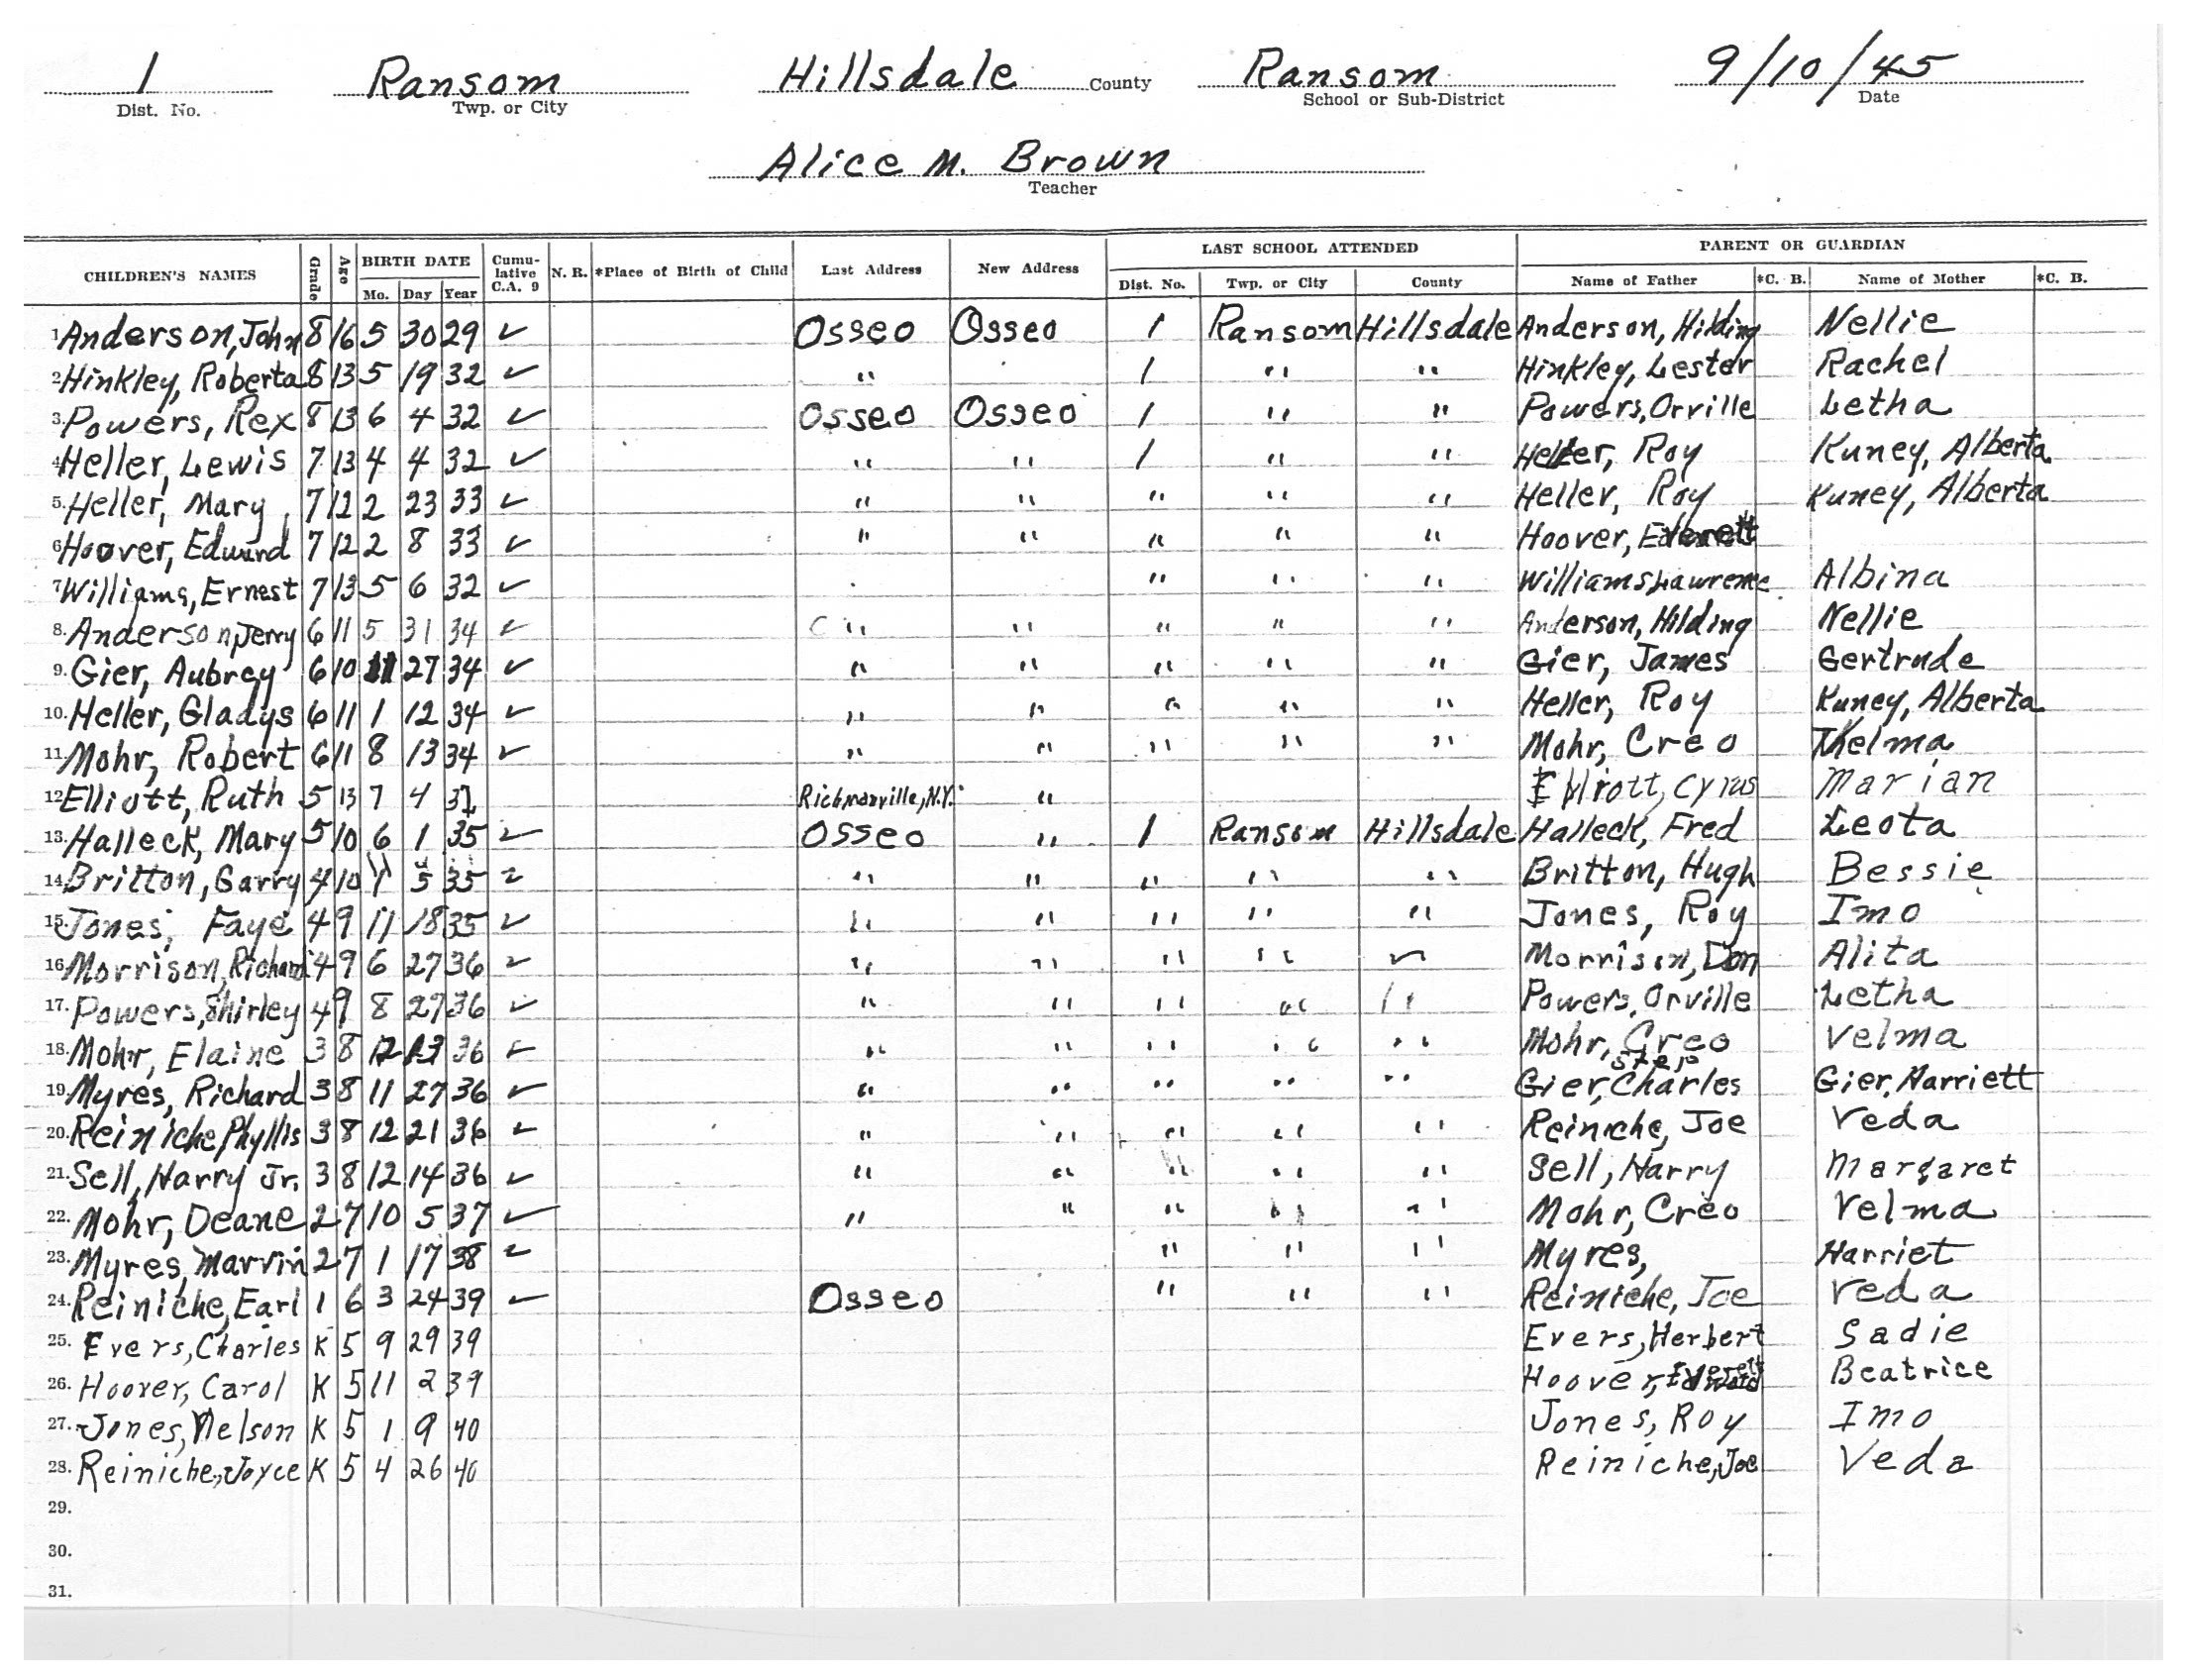 1 Ransom Hillsdale County Ransom 9/10/45
Dist. No. Twp. or City School or Sub-District Date
Alice M. Brown
Teacher
LAST SCHOOL ATTENDED PARENT OR GUARDIAN
CHILDREN'S NAMES Grade Age BIRTH DATE Cumu-lative C.A. 9 N. R. *Place of Birth of Child Last Address New Address
Mo. Day Year Dist. No. Twp. or City County Name of Father *C. B. Name of Mother *C. B.
1. Anderson, John 8 16 5 30 29 ✓ Osseo Osseo 1 Ransom Hillsdale Anderson, Hilding Nellie
2. Hinkley, Roberta 8 13 5 19 32 ✓ " 1 " " Hinkley, Lester Rachel
3. Powers, Rex 8 13 6 4 32 ✓ Osseo Osseo 1 " " Powers, Orville Letha
4. Heller, Lewis 7 13 4 4 32 ✓ " " 1 " " Heller, Roy Kuney, Alberta
5. Heller, Mary 7 12 2 23 33 ✓ " " " " " Heller, Roy Kuney, Alberta
6. Hoover, Edward 7 12 2 8 33 ✓ " " " " " Hoover, Everett
7. Williams, Ernest 7 13 5 6 32 ✓ " " " Williams, Lawrence Albina
8. Anderson, Jerry 6 11 5 31 34 ✓ " " " " " Anderson, Hilding Nellie
9. Gier, Aubrey 6 10 11 27 34 ✓ " " " " " Gier, James Gertrude
10. Heller, Gladys 6 11 1 12 34 ✓ " " " " " Heller, Roy Kuney, Alberta
11. Mohr, Robert 6 11 8 13 34 ✓ " " " " " Mohr, Creo Thelma
12. Elliott, Ruth 5 13 7 4 Richmonville, N.Y. " Elliott, Cyrus Marian
13. Halleck, Mary 5 10 6 1 35 ✓ Osseo " 1 Ransom Hillsdale Halleck, Fred Leota
14. Britton, Garry 4 10 5 35 ✓ " " " " " Britton, Hugh Bessie
15. Jones, Faye 4 9 11 18 35 ✓ " " " " " Jones, Roy Imo
16. Morrison, Richard 4 9 6 27 36 ✓ " " " " " Morrison, Don Alita
17. Powers, Shirley 4 9 8 27 36 ✓ " " " " " Powers, Orville Letha
18. Mohr, Elaine 3 8 12 23 36 ✓ " " " " " Mohr, Creo Velma
19. Myres, Richard 3 8 11 27 36 ✓ " " " " " Gier, step Charles Gier, Harriett
20. Reiniche, Phyllis 3 8 12 21 36 ✓ " " " " " Reiniche, Joe Veda
21. Sell, Harry Jr. 3 8 12 14 36 ✓ " " " " " Sell, Harry Margaret
22. Mohr, Deane 2 7 10 5 37 ✓ " " " " " Mohr, Creo Velma
23. Myres, Marvin 2 7 1 17 38 ✓ " " " Myres, Harriet
24. Reiniche, Earl 1 6 3 24 39 ✓ Osseo " " " Reiniche, Joe Veda
25. Evers, Charles K 5 9 29 39 Evers, Herbert Sadie
26. Hoover, Carol K 5 11 2 39 Hoover, Everett Beatrice
27. Jones, Nelson K 5 1 9 40 Jones, Roy Imo
28. Reiniche, Joyce K 5 4 26 40 Reiniche, Joe Veda
29.
30.
31.